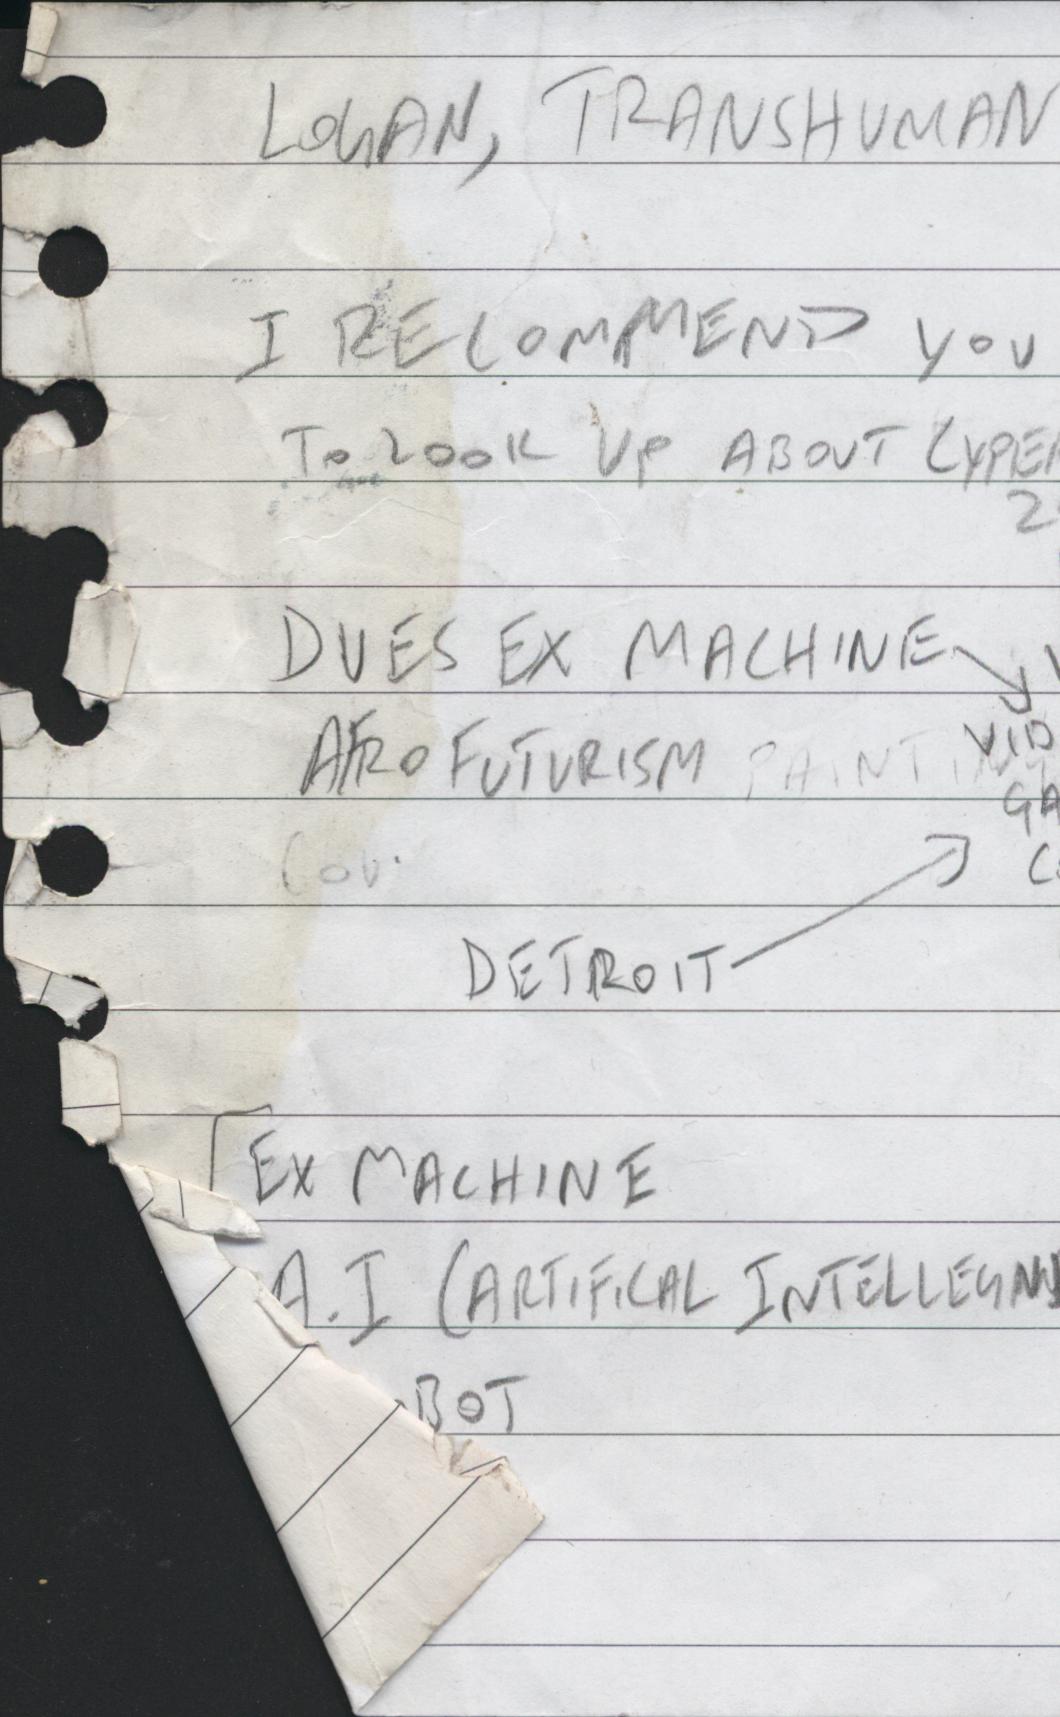 LOGAN, TRANSHUMAN
I RECOMMEND YOU
TO LOOK UP ABOUT CYPER
DUES EX MACHINE
VID
AFROFUTURISM PAINTIN
GA
DETROIT
EX MACHINE
A.I (ARTIFICAL INTELLEGN
BOT